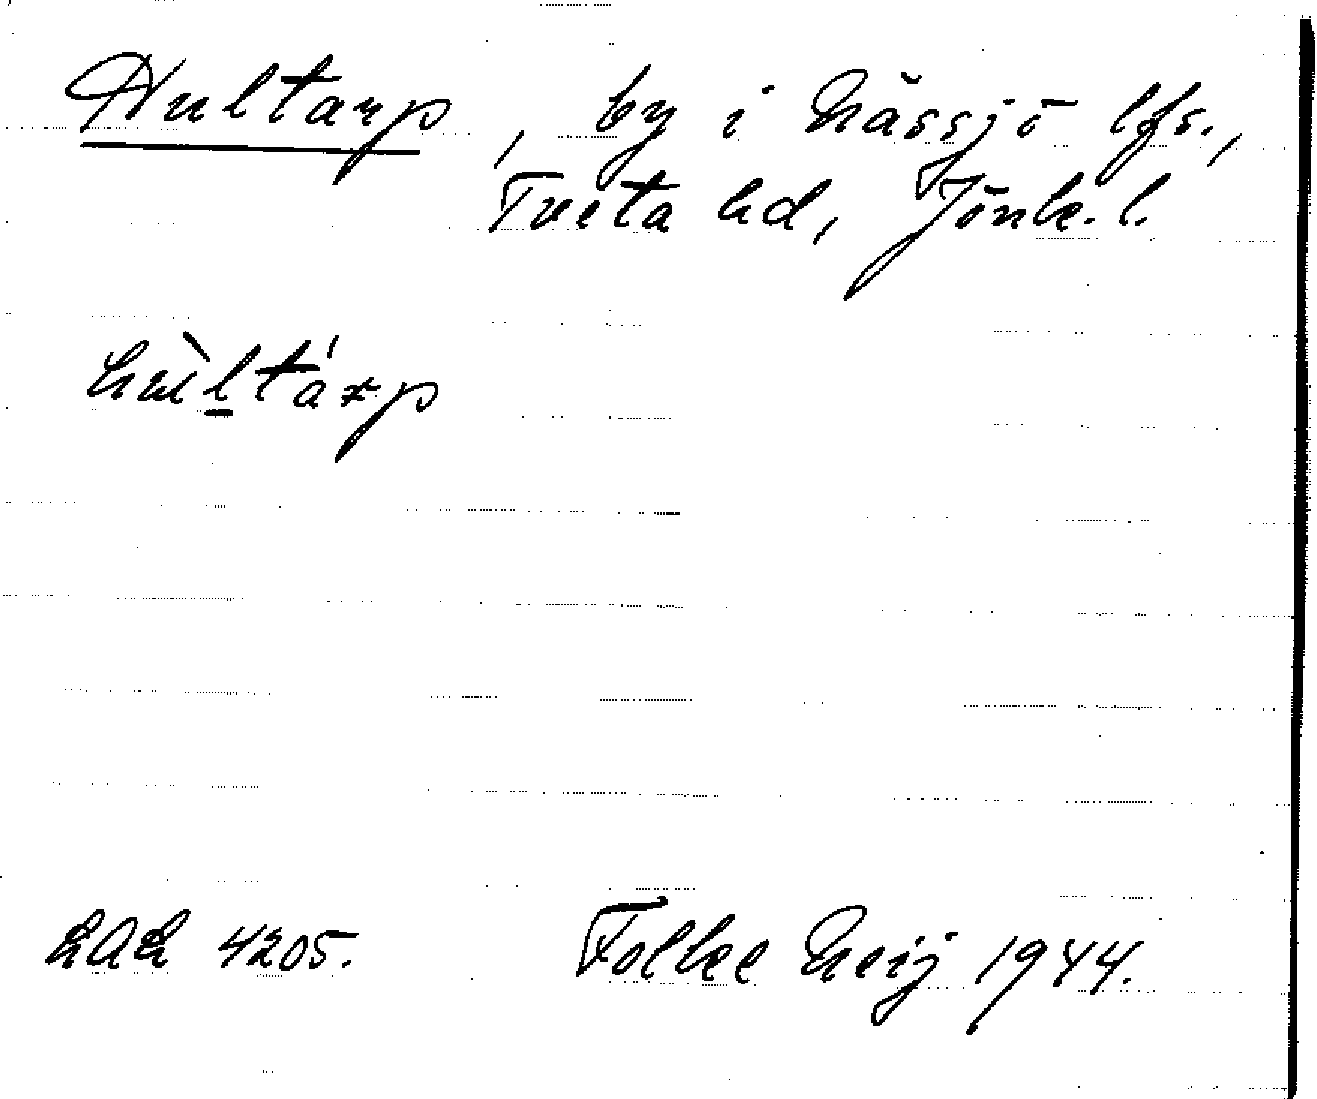 Hultarp, by i Nässjö lfs.,
Tveta hd, Jönk. l.
hùl̲tárp
LAL 4205. Folke Neij 1944.